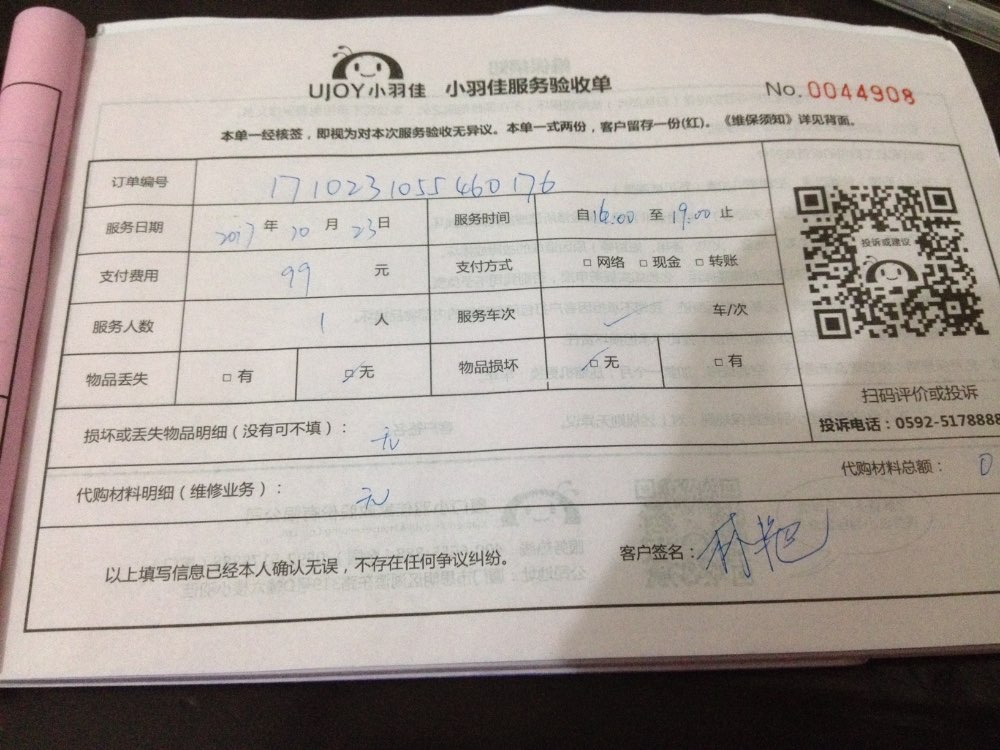 UJOY小羽佳 小羽佳服务验收单
No.0044908
本单一经核签，即视为对本次服务验收无异议。本单一式两份，客户留存一份(红)。《维保须知》详见背面。
订单编号 1710231055460176
服务日期 2017年10月23日 服务时间 自16:00至19:00止
支付费用 99 元 支付方式 □网络 □现金 □转账
服务人数 1 人 服务车次 车/次
物品丢失 □有 □无 物品损坏 □无 □有
投诉或建议
扫码评价或投诉
投诉电话：0592-5178888
损坏或丢失物品明细（没有可不填）： 无
代购材料明细（维修业务）： 无 代购材料总额： 0
以上填写信息已经本人确认无误，不存在任何争议纠纷。 客户签名：